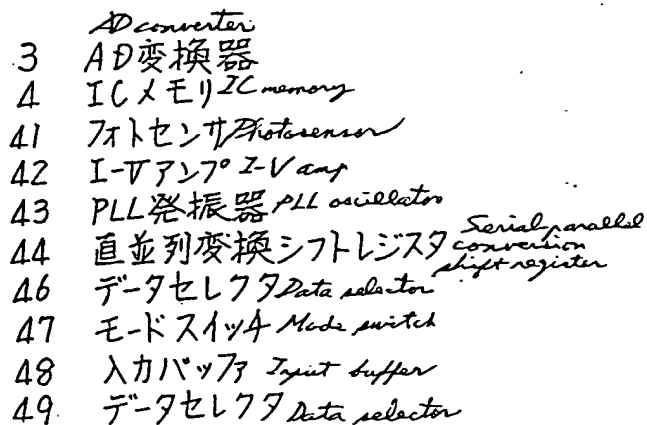 AD converter
3 AD変換器
4 ICメモリ IC memory
41 フォトセンサ Photosensor
42 I-Vアンプ I-V amp
43 PLL発振器 PLL oscillator
44 直並列変換シフトレジスタ Serial-parallel conversion shift register
46 データセレクタ Data selector
47 モードスイッチ Mode switch
48 入力バッファ Input buffer
49. データセレクタ Data selector